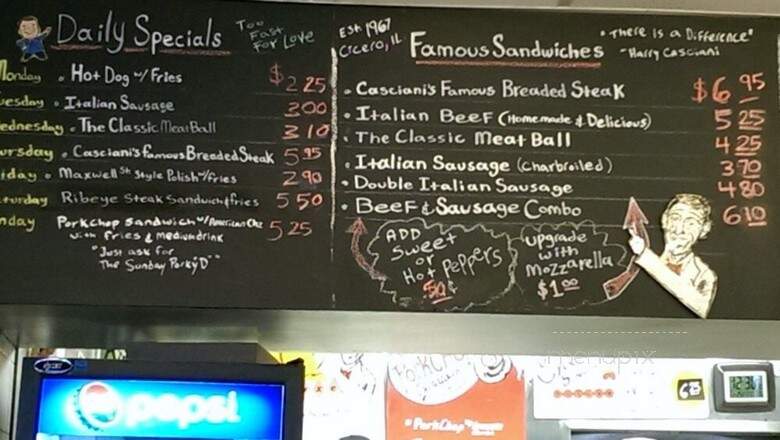 Daily Specials
Too
Fast
For Love
Monday • Hot Dog w/ Fries $2 25
Tuesday • Italian Sausage 3 00
Wednesday • The Classic Meat Ball 3 10
Thursday • Casciani's famous Breaded Steak 5 95
Friday • Maxwell St Style Polish w/fries 2 90
Saturday Ribeye Steak Sandwich & fries 5 50
Sunday Porkchop sandwich w/ American Chz 5 25
with fries & medium drink
"Just ask for
The Sunday Porky'D"
Est. 1967
Cicero, IL
Famous Sandwiches
"There is a Difference"
-Harry Casciani
• Casciani's Famous Breaded Steak $6 95
• Italian Beef (Homemade & Delicious) 5 25
• The Classic Meat Ball 4 25
• Italian Sausage (charbroiled) 3 70
• Double Italian Sausage 4 80
• Beef & Sausage Combo 6 10
ADD
Sweet
or
Hot Peppers
50¢
Upgrade
with
Mozzarella
$1 00
menupix
pepsi
Porkchop
6 25